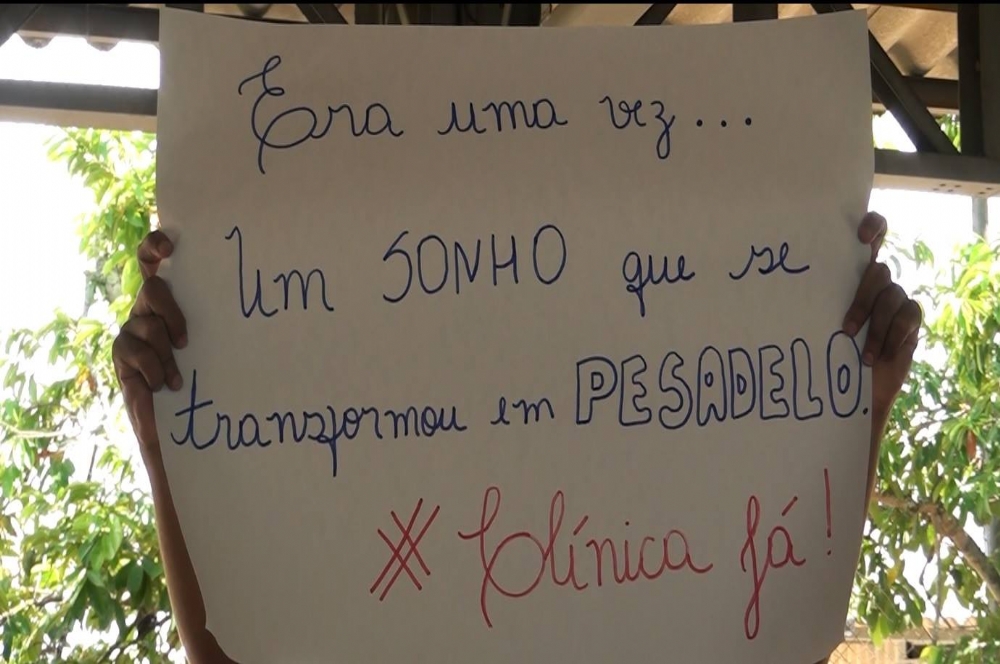 Era uma vez...
Um SONHO que se
transformou em PESADELO.
# Clínica Já!